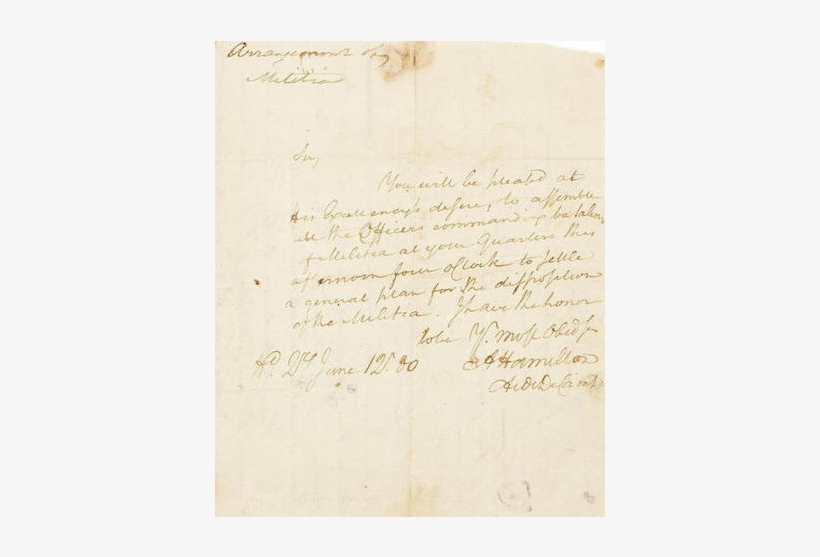 Arrangement of
Militia
Sir,
You will be pleased at
His Excellency's desire, to assemble
all the Officers commanding batalions
of Militia at your Quarters this
afternoon four oClock to settle
a general plan for the disposition
of the Militia. I have the honor
to be Yr. most Obedt
Hd. Qrs June 12. 80
A Hamilton
Aid De Camp